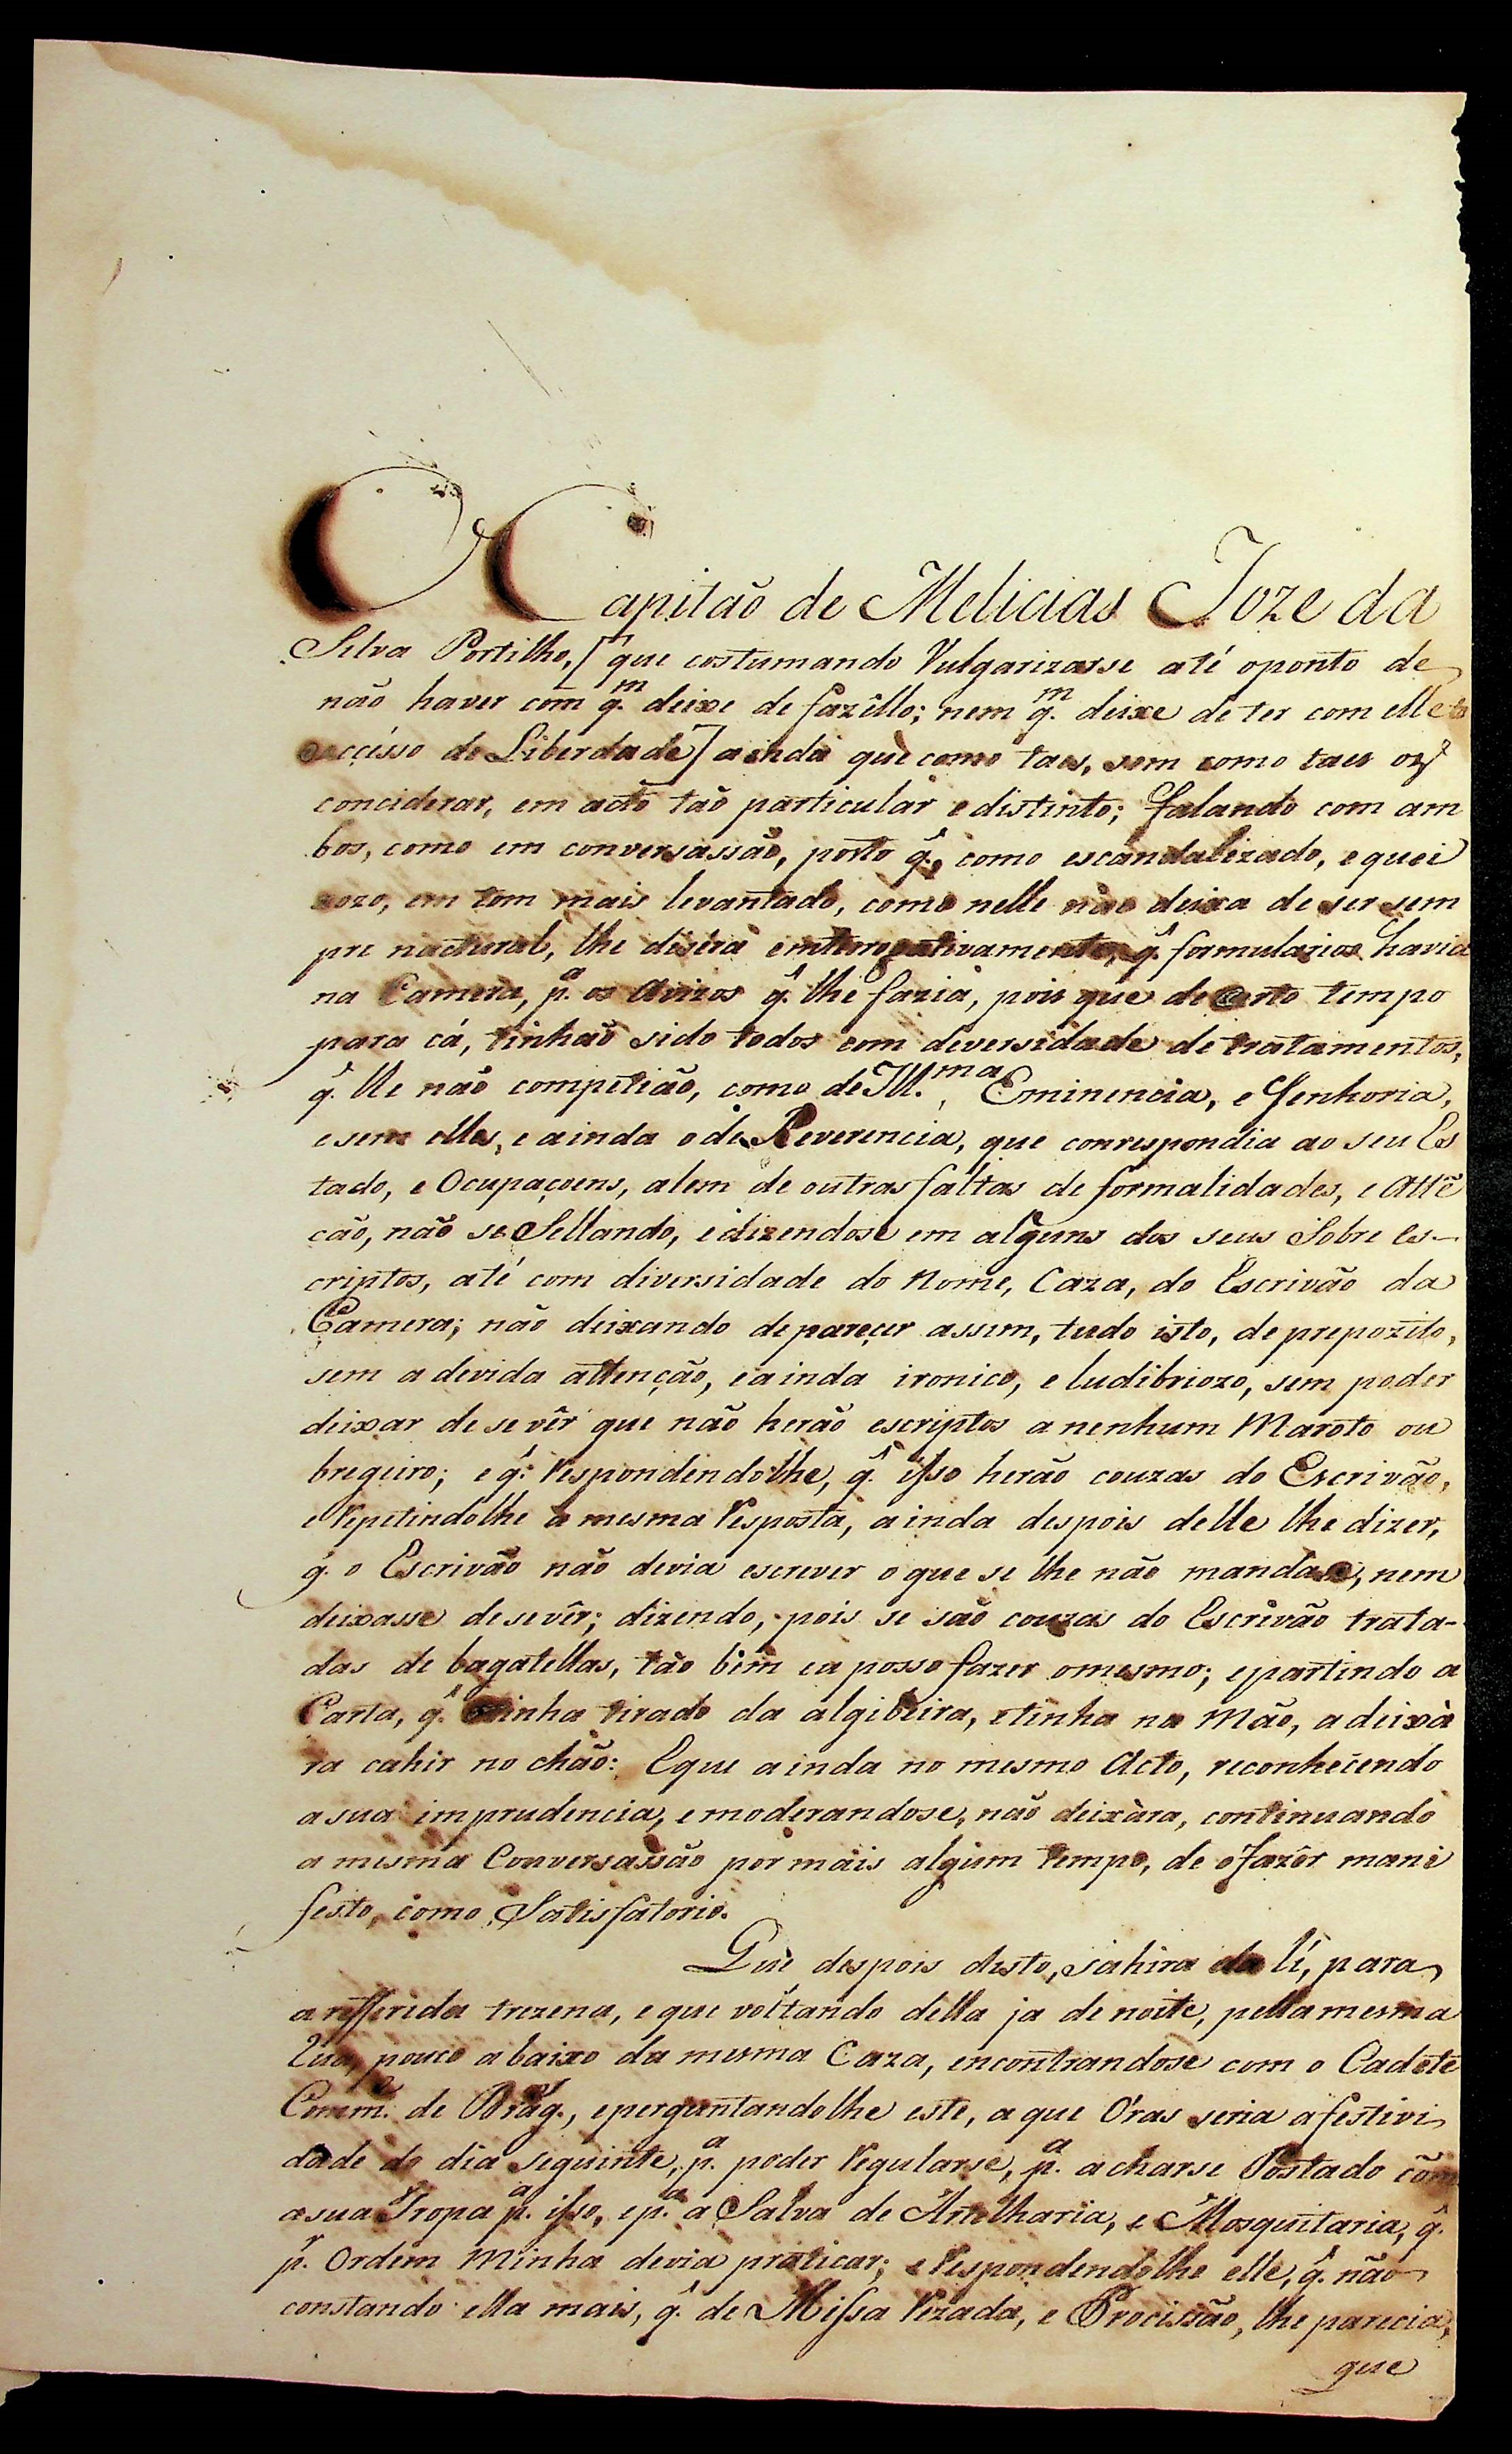 O Capitaõ de Melicias Joze da
Silva Portilho, [que costumando Vulgarizarse até oponto de
naõ haver com q.m deixe de fazêllo; nem q.m deixe de ter com elle
accésso de Liberdade] ainda que como taes, sem como taes os
conciderar, em acto taõ particular e distinto; falando com am
bos, como em conversassaõ, posto q̂., como escandalizado, e quei
xozo, em tom mais levantado, como nelle naõ deixa de ser sem
pre nactural, lhe disera emterrogativamente, q̂. formularios havia
na Camera, p.a os Avizos q̂. lhe fazia, pois que de certo tempo
para cá, tinhaõ sido todos com diversidade de tratamentos,
q̂. lle naõ competiaõ, como de Ill.ma, Eminencia, e Senhoria,
e sem elles, e ainda o de Reverencia, que conrespondia ao seu Es
tado, e Ocupaçoens, alem de outras faltas de formalidades, e attẽ
caõ, naõ se Sellando, e dizendose em alguns dos seus Sobre es-
criptos, até com diversidade do Nome, Caza, do Escrivaõ da
Camera; naõ deixando de pareçer assim, tudo isto, de prepozito,
sem a devida attençaõ, e ainda ironico, e ludibriozo, sem poder
deixar de se vêr que naõ heraõ escriptos a nenhum Maroto ou
bregeiro; e q̂. respondendolhe, q̂. isso heraõ couzas do Escrivaõ,
e repetindolhe a mesma resposta, ainda despois delle lhe dizer,
q̂. o Escrivaõ naõ devia escrever o que se lhe naõ mandase, nem
deixasse de se vêr; dizendo, pois se saõ couzas do Escrivaõ trata-
das de bagatellas, taõ bem eu posso fazer o mesmo; e partindo a
Carta, q̂. tinha tirado da algibeira, e tinha na Maõ, a deixà
ra cahir no chaõ: E que ainda no mesmo Acto, reconhecendo
a sua imprudencia, e moderandose, naõ deixàra, continuando
a mesma Conversassaõ por mais algum tempo, de o fazêr mani
festo, como Satisfatorio.
Que despois disto, sahira da lí, para
a refferida trezena, e que voltando della ja de noite, pella mesma
rua, pouco abaixo da mesma Caza, encontrandose com o Cadete
Comm.e de Brag., e perguntandolhe este, a que Oras seria a festivi
dade do dia seguinte, p.a poder regularse, p.a acharse Postado com
a sua Tropa p.a isso, e p.a a Salva de Artelharia, e Mosquitaria, q̂.
p.r Ordem Minha devia praticar; e respondendolhe elle, q̂. naõ
constando ella mais, q̂. de Missa rezada, e Procissaõ, lhe parecia,
que